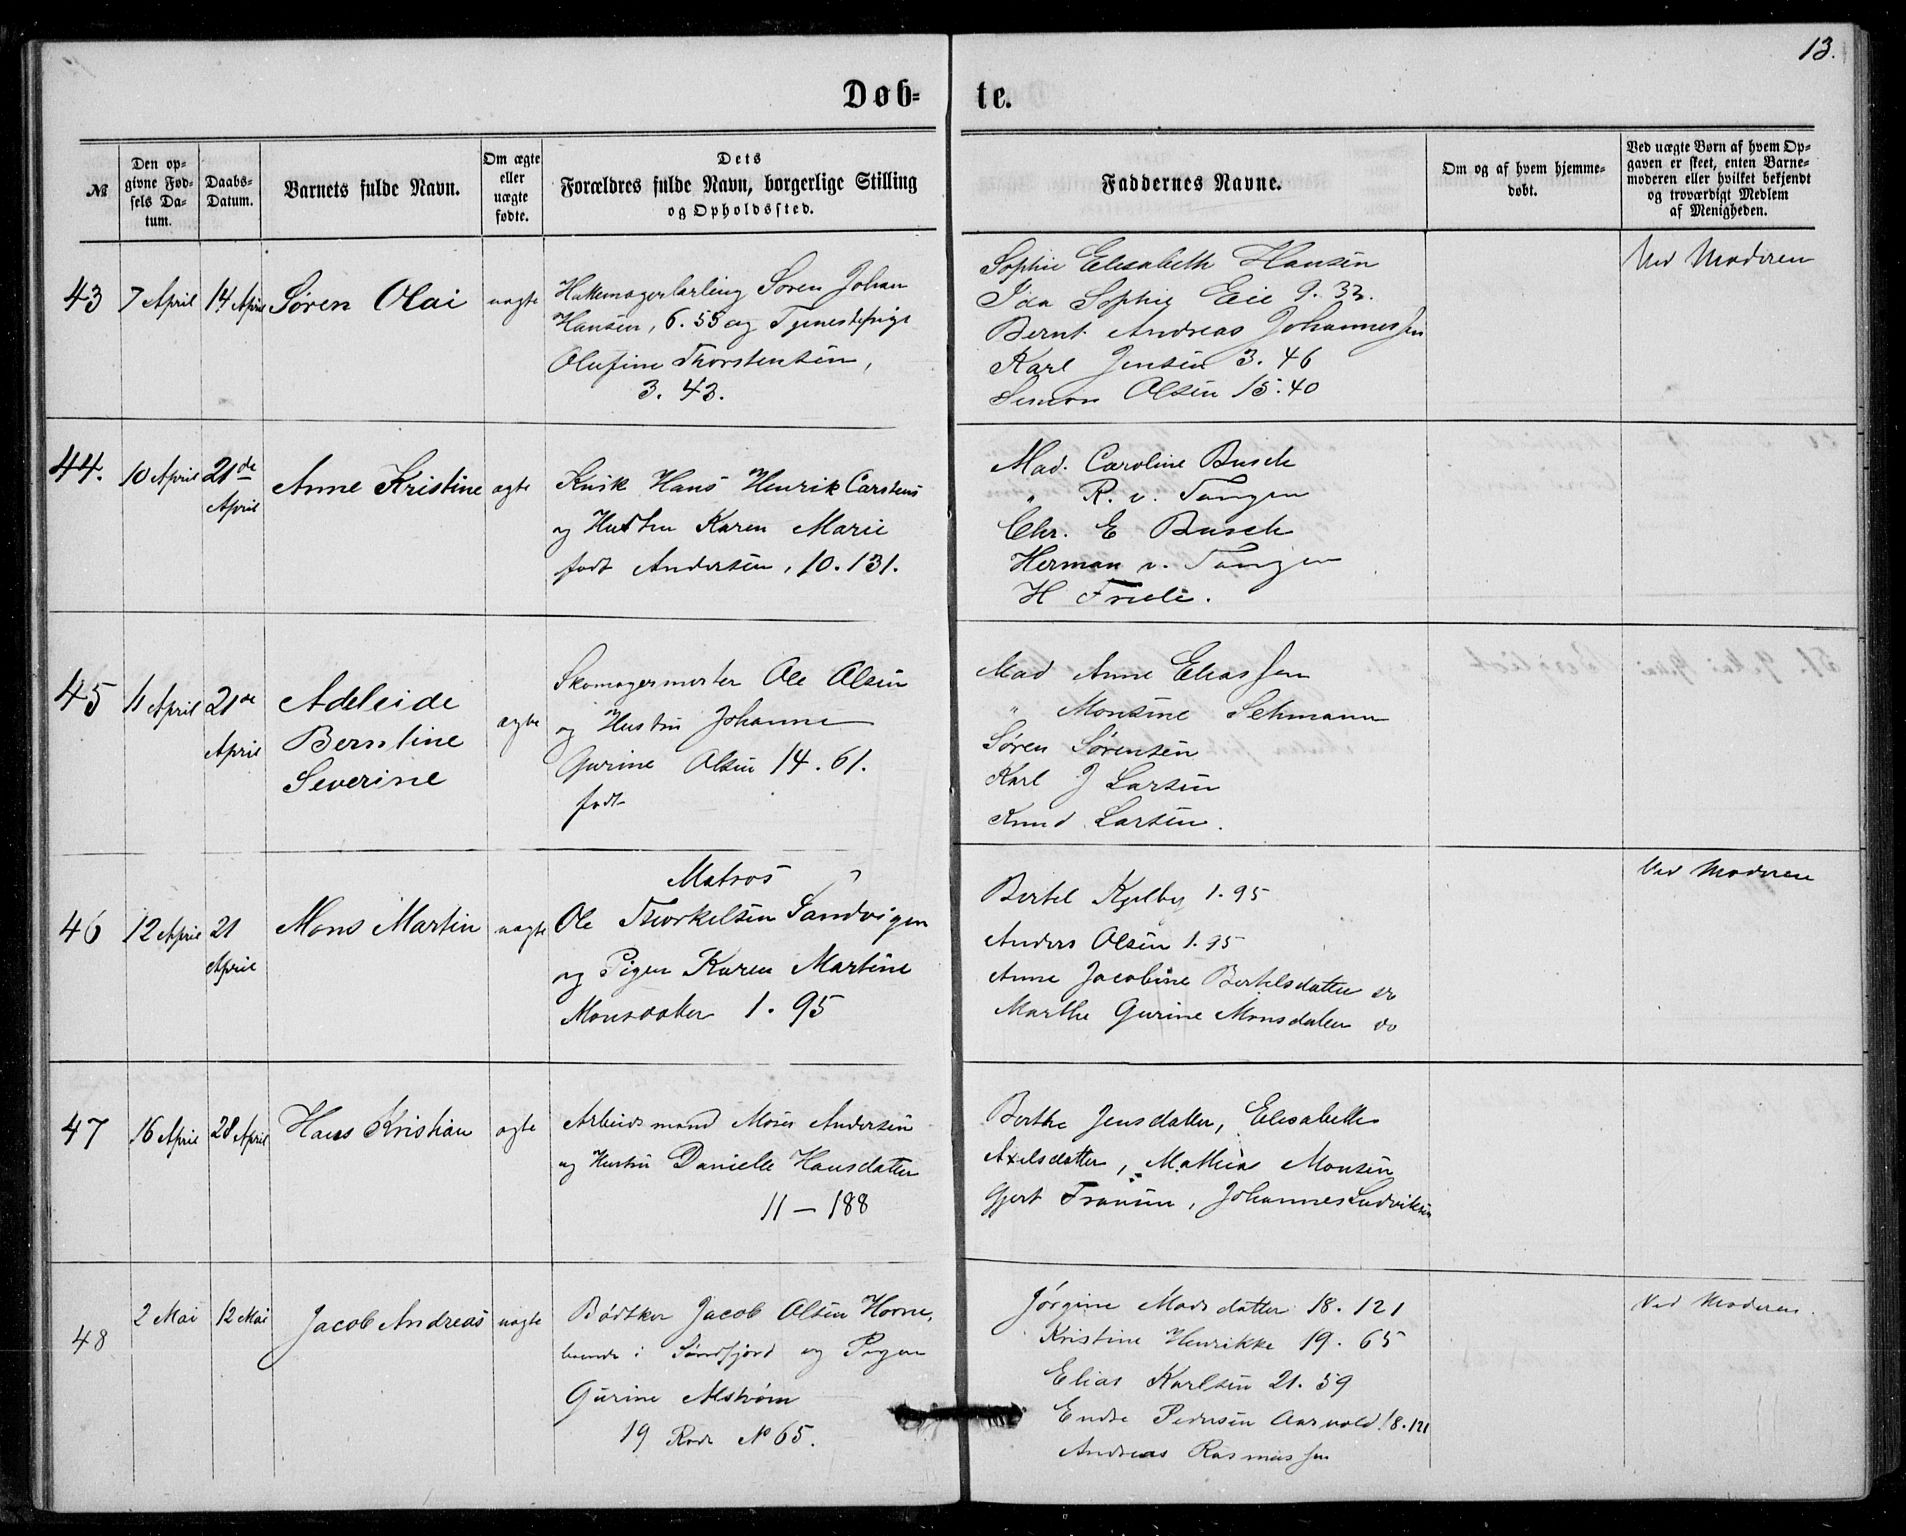 13.
Døb-
te.
№
Den op-
givne Fød-
sels Da-
tum.
Daabs-
Datum.
Barnets fulde Navn.
Om ægte
eller
uægte
fødte.
Dets
Forældres fulde Navn, borgerlige Stilling
og Opholdssted.
Faddernes Navne.
Om og af hvem hjemme-
døbt.
Ved uægte Børn af hvem Op-
gaven er skeet, enten Barne-
moderen eller hvilket bekjendt
og troværdigt Medlem
af Menigheden.
43
7 April
14 April
Søren Olai
uægte
Søren Johan
Hansen, 6. 55 og Tjenestepige
Olufine Thorstensen,
3. 43.
Sophie Elisabeth Hansen
Ida Sophie Eie 9. 33.
Bernt Andreas Johannessen
Karl Jensen 3. 46
Simon Olsen 15. 40
Ved Moderen
44.
10 April
21de
April
Anne Kristine
ægte
Kusk Hans Henrik Carstens
og Hustru Karen Marie
født Andersen, 10. 131.
Mad. Caroline Busch
" R. v. Tangen
Chr. E Busch
Herman v. Tangen
H Friele.
45
11 April
21de
April
Adeleide
Berntine
Severine
ægte
Skomagermester Ole Olsen
og Hustru Johanne
Gurine Olsen 14. 61.
født
Mad Anne Eliassen
" Monsine Sehmann
Søren Sørensen
Karl J Larsen
Knud Larsen.
46
12 April
21
April
Mons Martin
uægte
Matros
Ole Thorkelsen Sandvigen
og Pigen Karen Martine
1. 95
Bertel Kjelby 1. 95
Anders Olsen 1. 95
Anne Jacobine Bertelsdatter do
Marthe Gurine Monsdatter do
Ved Moderen
47
16 April
28 April
Hans Kristian
ægte
Arbeidsmand Moses Andersen
og Hustru Danielle Hansdatter
11 — 188
Berthe Jensdatter, Elisabeth
Axelsdatter, Mathias Monsen
Gjert Fransen, Johannes Ludviksen
48
2 Mai
12 Mai
Jacob Andreas
uægte
Bødtker Jacob Olsen Hovne,
boende i Søndfjord og Pigen
Gurine Alstrøm
19 Rode № 65.
Jørgine Madsdatter 18. 121
Kristine Henrikke 19. 65
Elias Karlsen 21. 59
Endre Pedersen Aarvold 18. 121
Andreas Rasmussen
Ved Moderen.